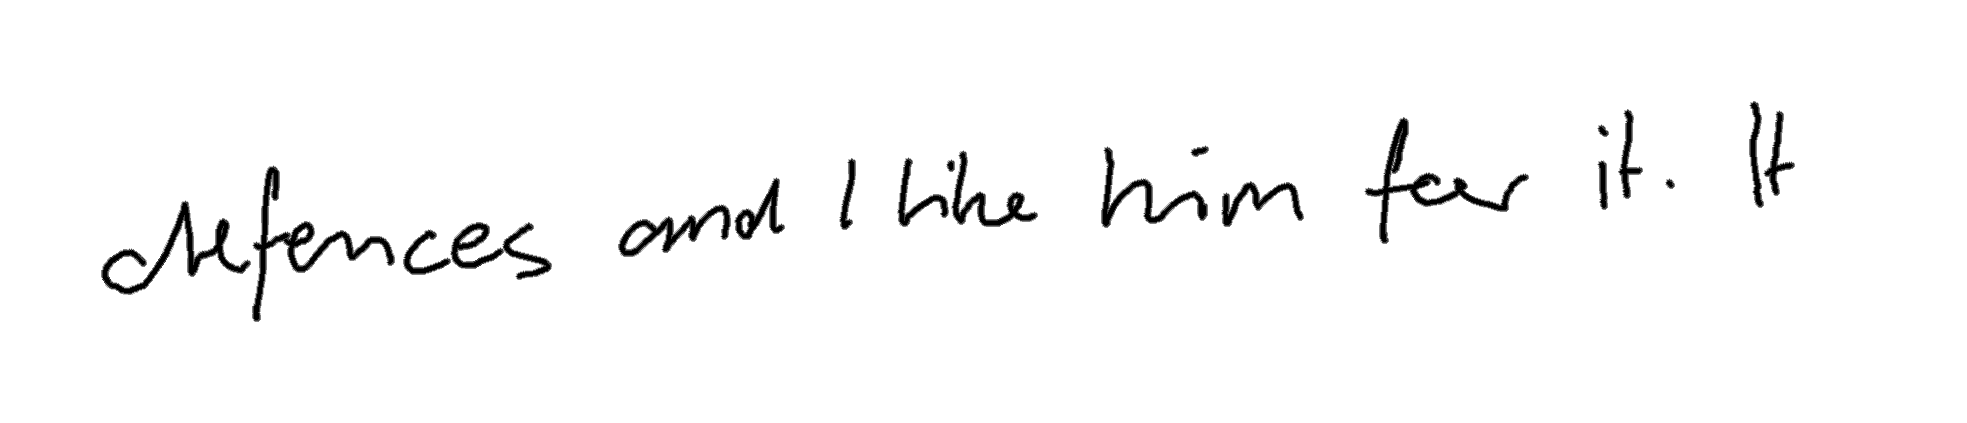 defences and I like him for it. It